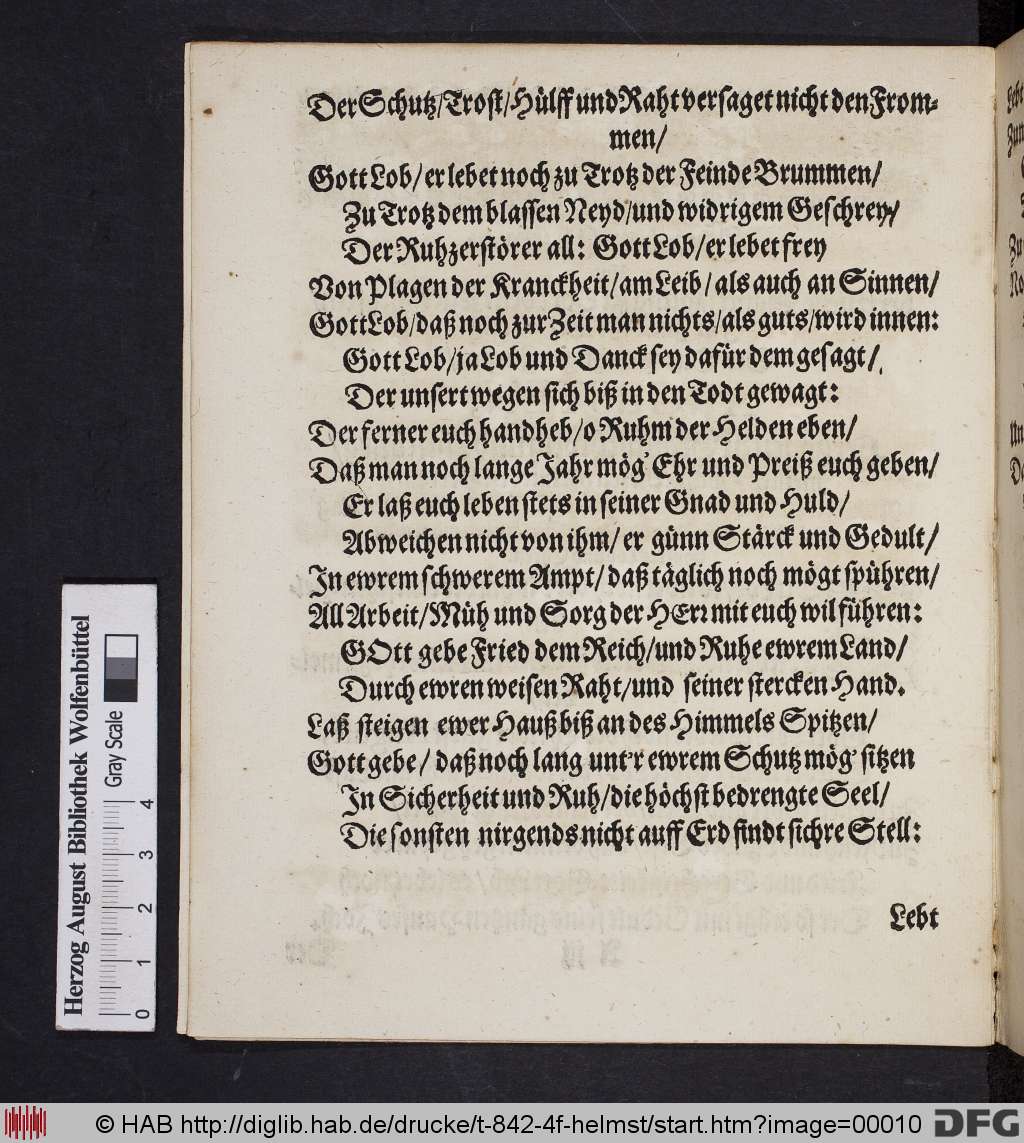 Der Schutz/Trost/Hülff und Raht versaget nicht den From-
men/
Gott Lob/er lebet noch zu Trotz der Feinde Brummen/
Zu Trotz dem blassen Neyd/und widrigem Geschrey/
Der Ruhzerstörer all: Gott Lob/er lebet frey
Von Plagen der Kranckheit/am Leib/als auch an Sinnen/
Gott Lob/daß noch zur Zeit man nichts/als guts/wird innen:
Gott Lob/ja Lob und Danck sey dafür dem gesagt/
Der unsert wegen sich biß in den Todt gewagt:
Der ferner euch handheb/o Ruhm der Helden eben/
Daß man noch lange Jahr mög' Ehr und Preiß euch geben/
Er laß euch leben stets in seiner Gnad und Huld/
Abweichen nicht von ihm/er günn Stärck und Gedult/
In ewrem schwerem Ampt/daß täglich noch mögt spühren/
All Arbeit/Müh und Sorg der HErr mit euch wil führen:
GOtt gebe Fried dem Reich/und Ruhe ewrem Land/
Durch ewren weisen Raht/und seiner stercken Hand.
Laß steigen ewer Hauß biß an des Himmels Spitzen/
Gott gebe/daß noch lang unt'r ewrem Schutz mög' sitzen
In Sicherheit und Ruh/die höchst bedrengte Seel/
Die sonsten nirgends nicht auff Erd findt sichre Stell:
Lebt
Herzog August Bibliothek Wolfenbüttel
Gray Scale
0 1 2 3 4
© HAB http://diglib.hab.de/drucke/t-842-4f-helmst/start.htm?image=00010
DFG